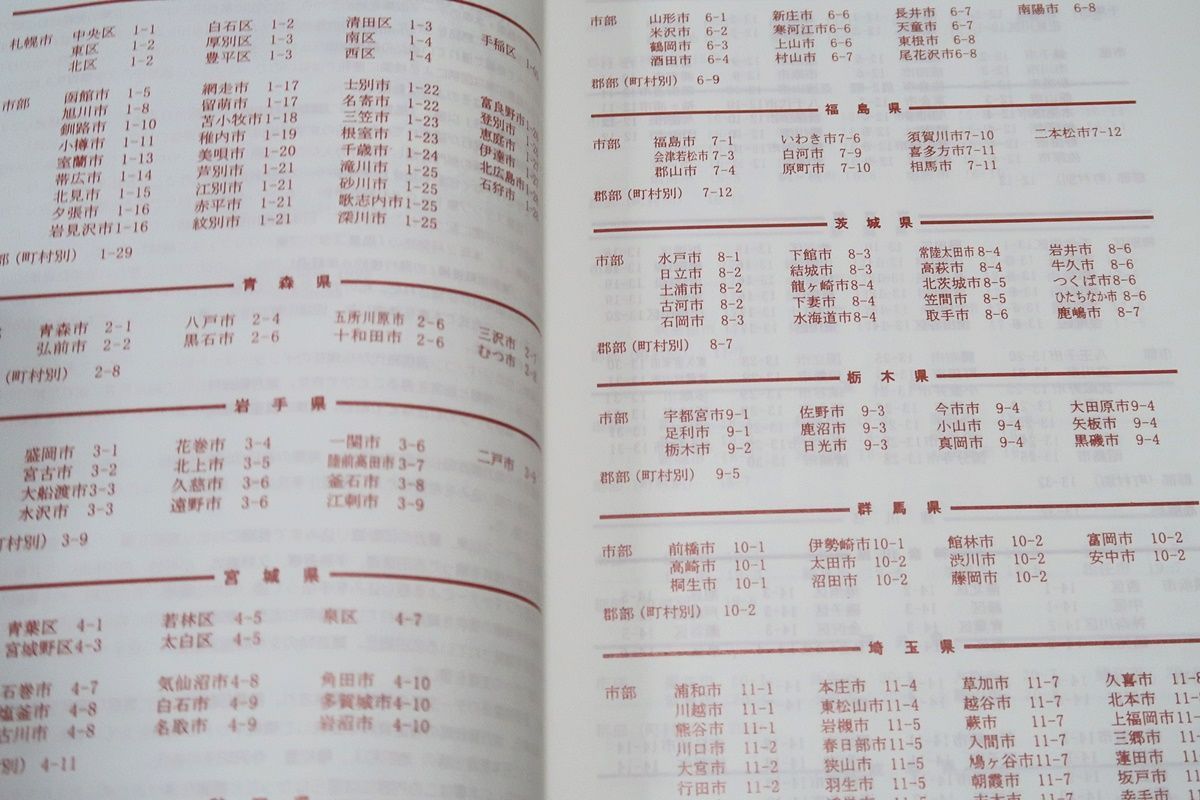 札幌市 中央区 1-1 白石区 1-2 清田区 1-3 手稲区
東区 1-2 厚別区 1-3 南区 1-4
北区 1-2 豊平区 1-3 西区 1-4
市部 函館市 1-5 網走市 1-17 士別市 1-22 富良野市
旭川市 1-8 留萌市 1-17 名寄市 1-22 登別市
釧路市 1-10 苫小牧市1-18 三笠市 1-23 恵庭市
小樽市 1-11 稚内市 1-19 根室市 1-23 伊達市
室蘭市 1-13 美唄市 1-20 千歳市 1-24 北広島市
帯広市 1-14 芦別市 1-21 滝川市 1-25 石狩市
北見市 1-15 江別市 1-21 砂川市 1-25
夕張市 1-16 赤平市 1-21 歌志内市1-25
岩見沢市1-16 紋別市 1-21 深川市 1-25
部(町村別) 1-29
青森県
青森市 2-1 八戸市 2-4 五所川原市 2-6 三沢市
弘前市 2-2 黒石市 2-6 十和田市 2-6 むつ市
(町村別) 2-8
岩手県
盛岡市 3-1 花巻市 3-4 一関市 3-6 二戸市
宮古市 3-2 北上市 3-5 陸前高田市3-7
大船渡市3-3 久慈市 3-6 釜石市 3-8
水沢市 3-3 遠野市 3-6 江刺市 3-9
町村別) 3-9
宮城県
青葉区 4-1 若林区 4-5 泉区 4-7
宮城野区4-3 太白区 4-5
石巻市 4-7 気仙沼市4-8 角田市 4-10
塩釜市 4-8 白石市 4-9 多賀城市4-10
古川市 4-8 名取市 4-9 岩沼市 4-10
別) 4-11
市部 山形市 6-1 新庄市 6-6 長井市 6-7 南陽市 6-8
米沢市 6-2 寒河江市6-6 天童市 6-7
鶴岡市 6-3 上山市 6-6 東根市 6-8
酒田市 6-4 村山市 6-7 尾花沢市6-8
郡部(町村別) 6-9
福島県
市部 福島市 7-1 いわき市7-6 須賀川市7-10 二本松市7-12
会津若松市7-3 白河市 7-9 喜多方市7-11
郡山市 7-4 原町市 7-10 相馬市 7-11
郡部(町村別) 7-12
茨城県
市部 水戸市 8-1 下館市 8-3 常陸太田市8-4 岩井市 8-6
日立市 8-2 結城市 8-3 高萩市 8-4 牛久市 8-6
土浦市 8-2 龍ヶ崎市8-4 北茨城市8-5 つくば市8-6
古河市 8-2 下妻市 8-4 笠間市 8-5 ひたちなか市 8-6
石岡市 8-3 水海道市8-4 取手市 8-6 鹿嶋市 8-7
郡部(町村別) 8-7
栃木県
市部 宇都宮市9-1 佐野市 9-3 今市市 9-4 大田原市9-4
足利市 9-1 鹿沼市 9-3 小山市 9-4 矢板市 9-4
栃木市 9-2 日光市 9-3 真岡市 9-4 黒磯市 9-4
郡部(町村別) 9-5
群馬県
市部 前橋市 10-1 伊勢崎市10-1 館林市 10-2 富岡市 10-2
高崎市 10-1 太田市 10-2 渋川市 10-2 安中市 10-2
桐生市 10-1 沼田市 10-2 藤岡市 10-2
郡部(町村別) 10-2
埼玉県
市部 浦和市 11-1 本庄市 11-4 草加市 11-7 久喜市 11-8
川越市 11-1 東松山市11-4 越谷市 11-7 北本市
熊谷市 11-1 岩槻市 11-5 蕨市 11-7 上福岡市
川口市 11-2 春日部市11-5 入間市 11-7 三郷市
大宮市 11-2 狭山市 11-5 鳩ヶ谷市11-7 蓮田市
行田市 11-2 羽生市 11-5 朝霞市 11-7 坂戸市
幸手市